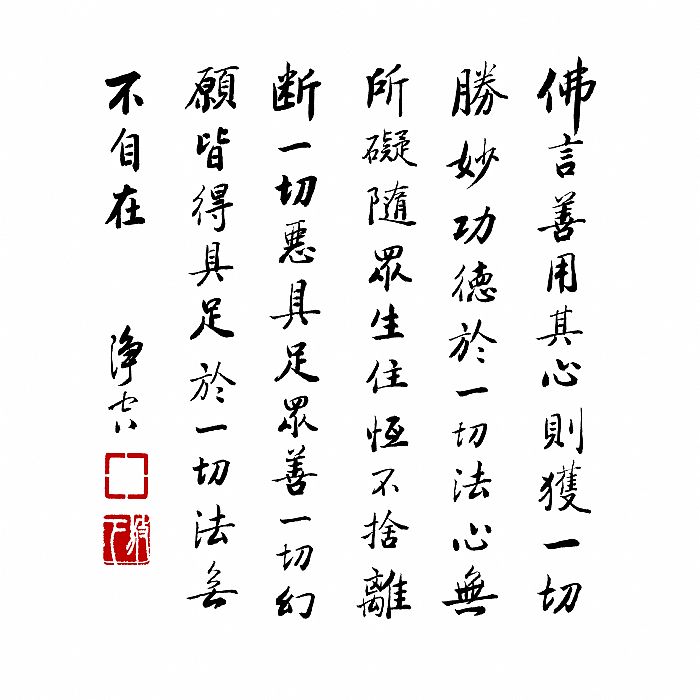 佛言善用其心則獲一切
勝妙功德於一切法心無
所礙隨眾生住恆不捨離
断一切惡具足眾善一切幻
願皆得具足於一切法無
不自在
淨空